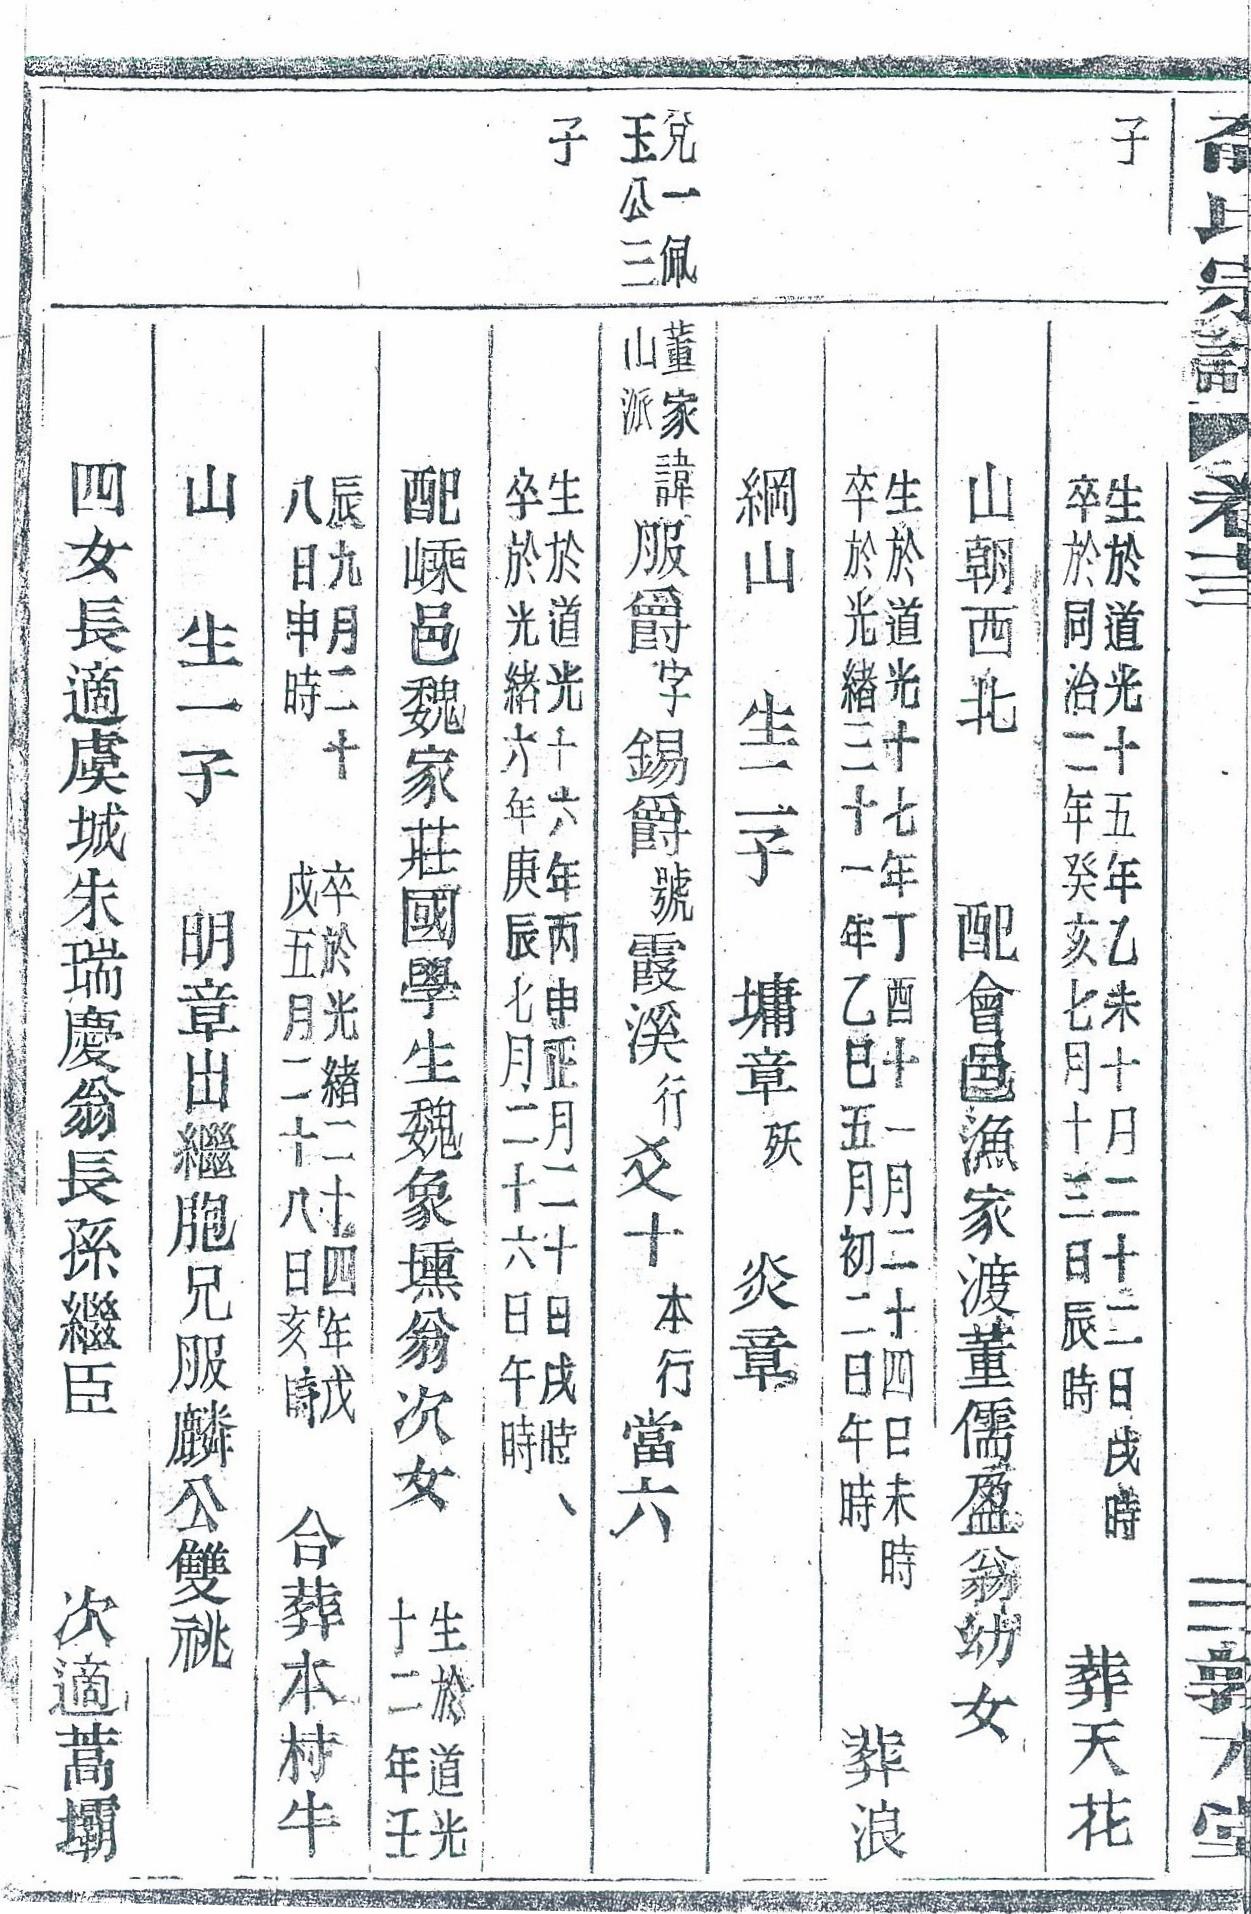 俞氏宗譜 卷三 三 敦 堂
子
生於道光十五年乙未十月二十二日戌時
卒於同治二年癸亥七月十三日辰時
葬天花
山朝西北 配會邑漁家渡董儒盈翁幼女
生於道光十七年丁酉十一月二十四日未時
卒於光緒三十一年乙巳五月初二日午時
葬浪
綱山 生二子 墉章 殀 炎章
兌一佩
玉公三
董家
山派
諱服爵字錫爵號霞溪行爻十本行當六
子
生於道光十六年丙申正月二十日戌時、
卒於光緒六年庚辰七月二十六日午時
配嵊邑魏家莊國學生魏象壎翁次女
生於道光
十二年壬
辰九月二十
八日申時
卒於光緒二十四年戊
戌五月二十八日亥時
合葬本村牛
山 生一子 明章出繼胞兄服麟公雙祧
四女長適虞城朱瑞慶翁長孫繼臣 次適蒿壩